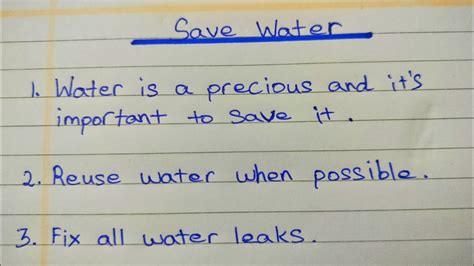 Save Water
1. Water is a precious and it's
important to save it.
2. Reuse water when possible.
3. Fix all water leaks.